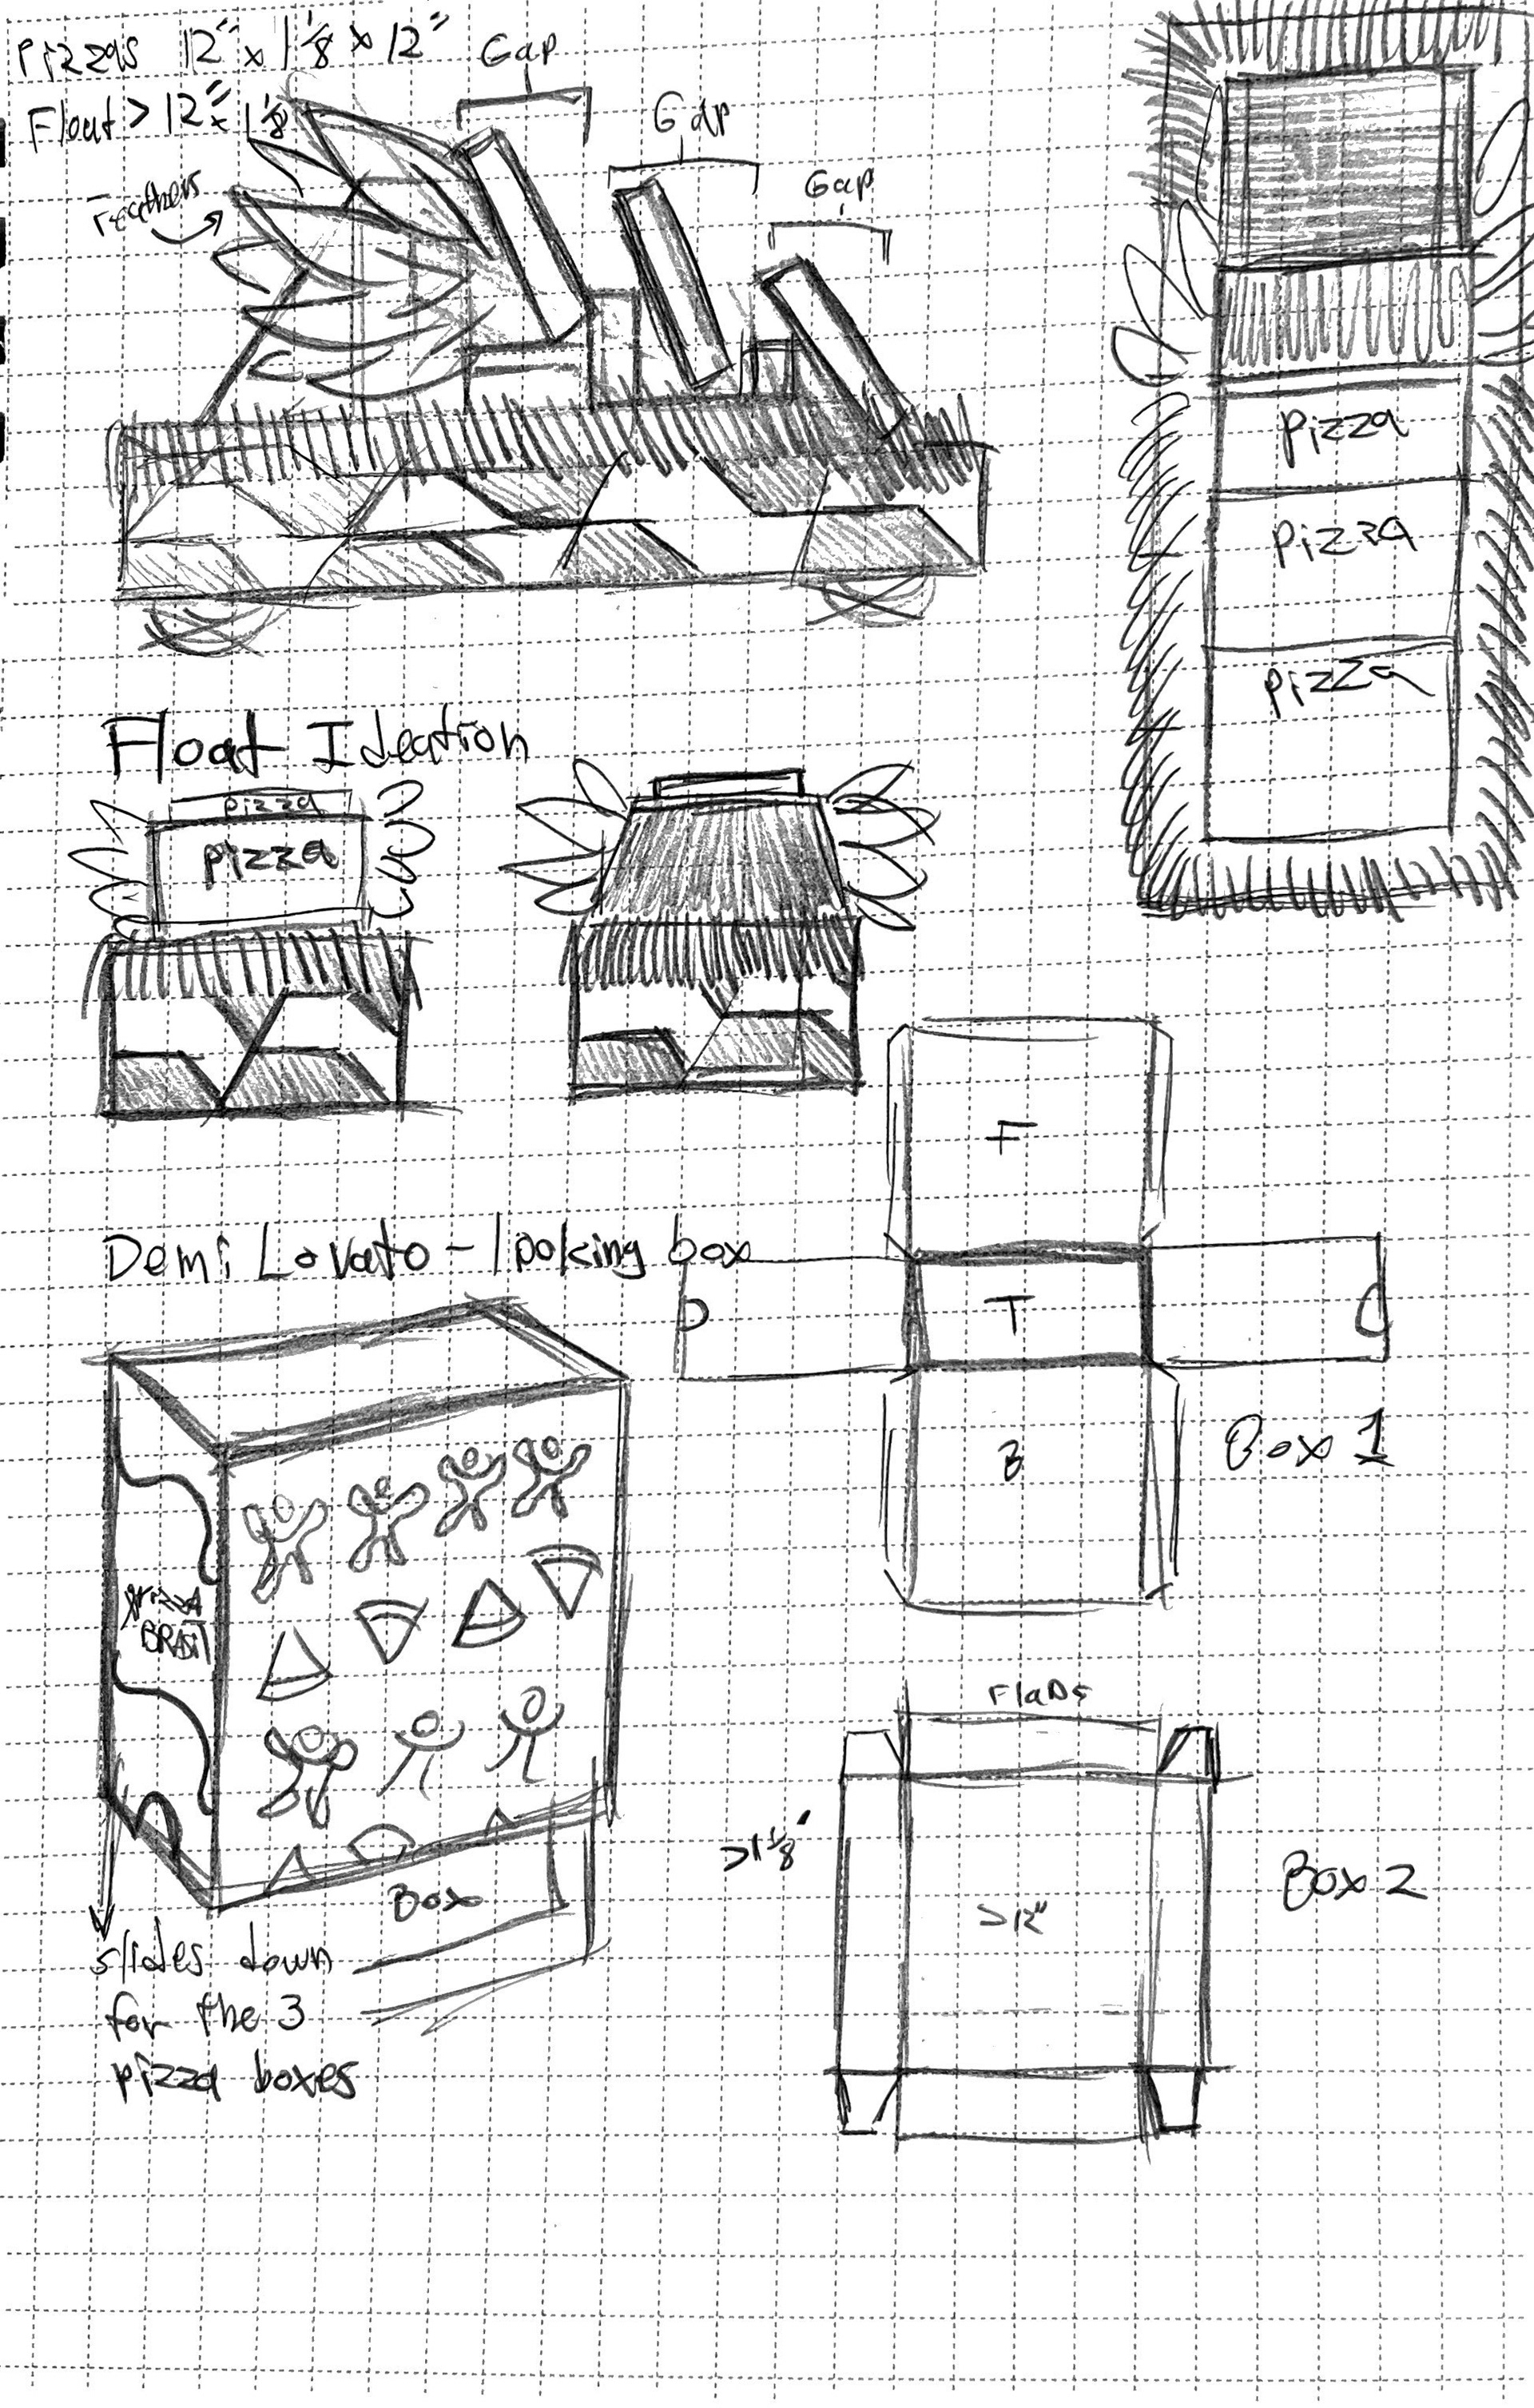 Pizzas 12" x 1 1/8 x 12"
Float > 12" x 1 1/8
Gap
Gap
Gap
Feathers
pizza
pizza
pizza
Float Ideation
pizza
pizza
Demi Lovato - looking box
F
T
B
Box 1
PIZZA
BRASIL
Box
slides down
for the 3
pizza boxes
Flaps
>1 1/8"
>12"
Box 2